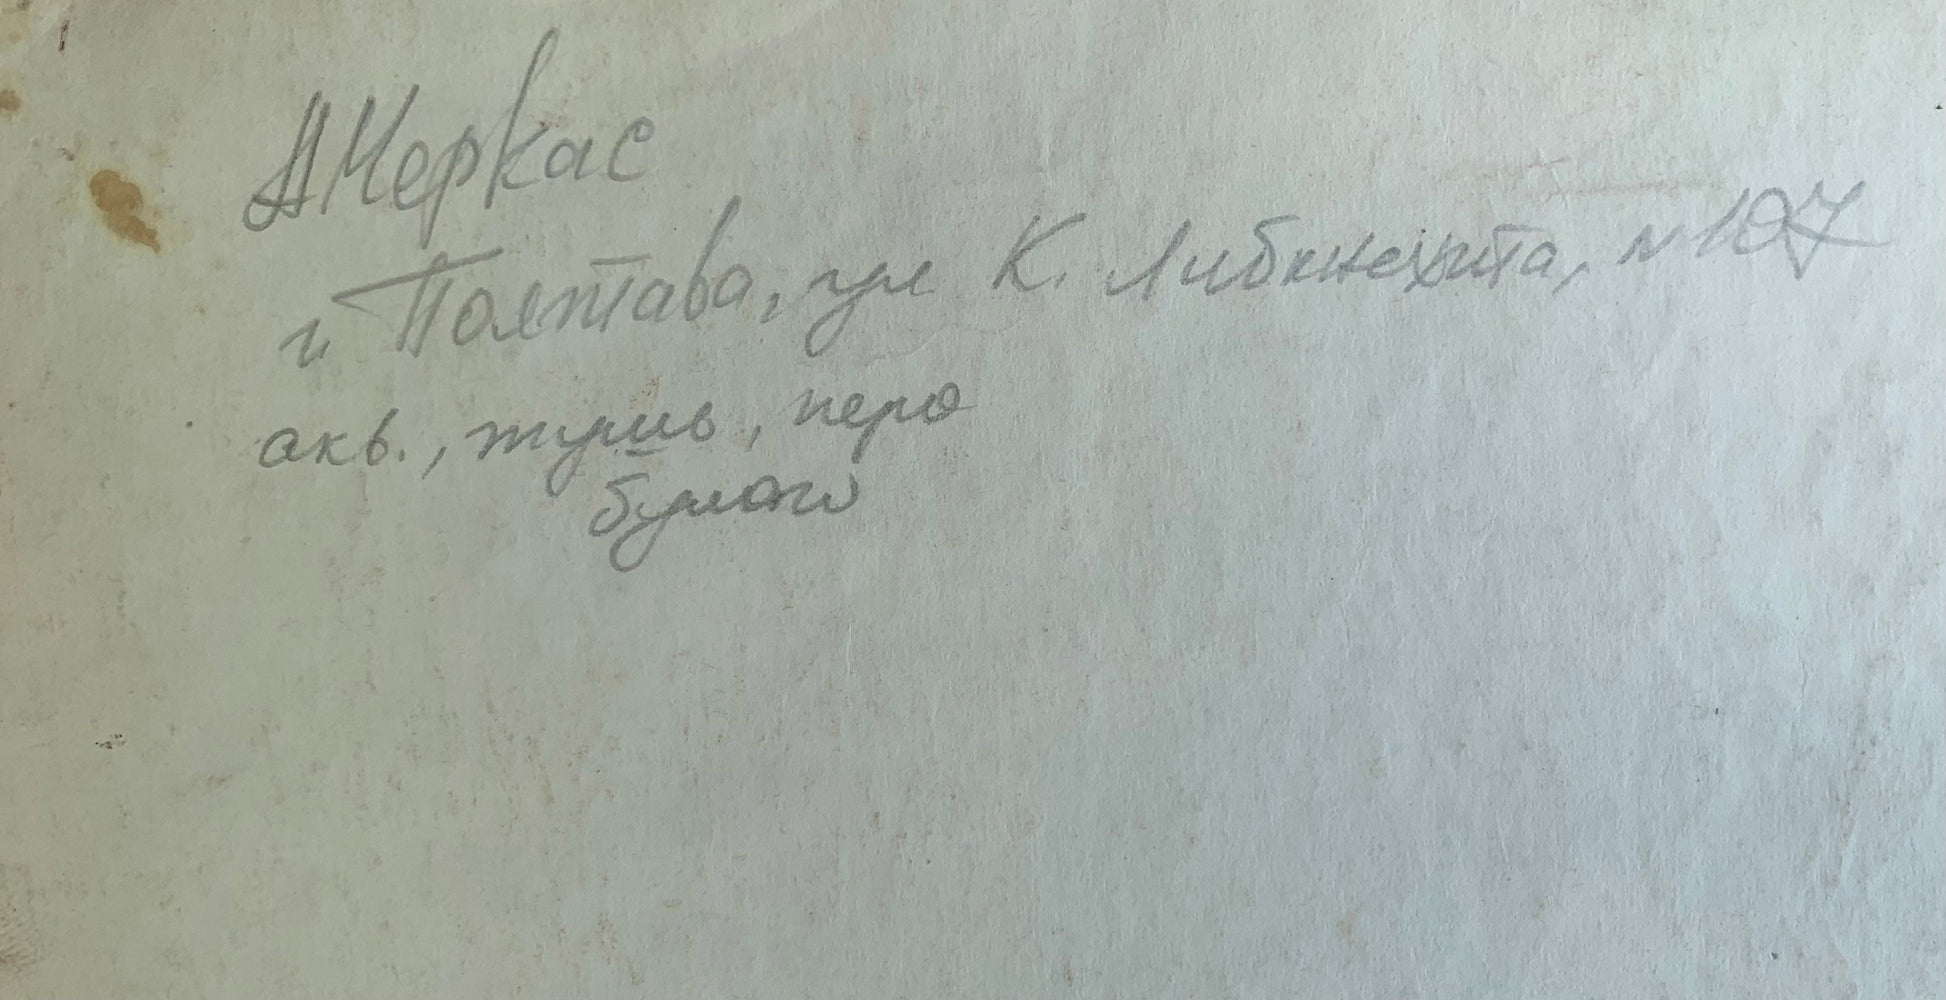 А Черкас
г. Полтава, ул К. Либкнехта, № 107
акв., тушь, перо
бумага